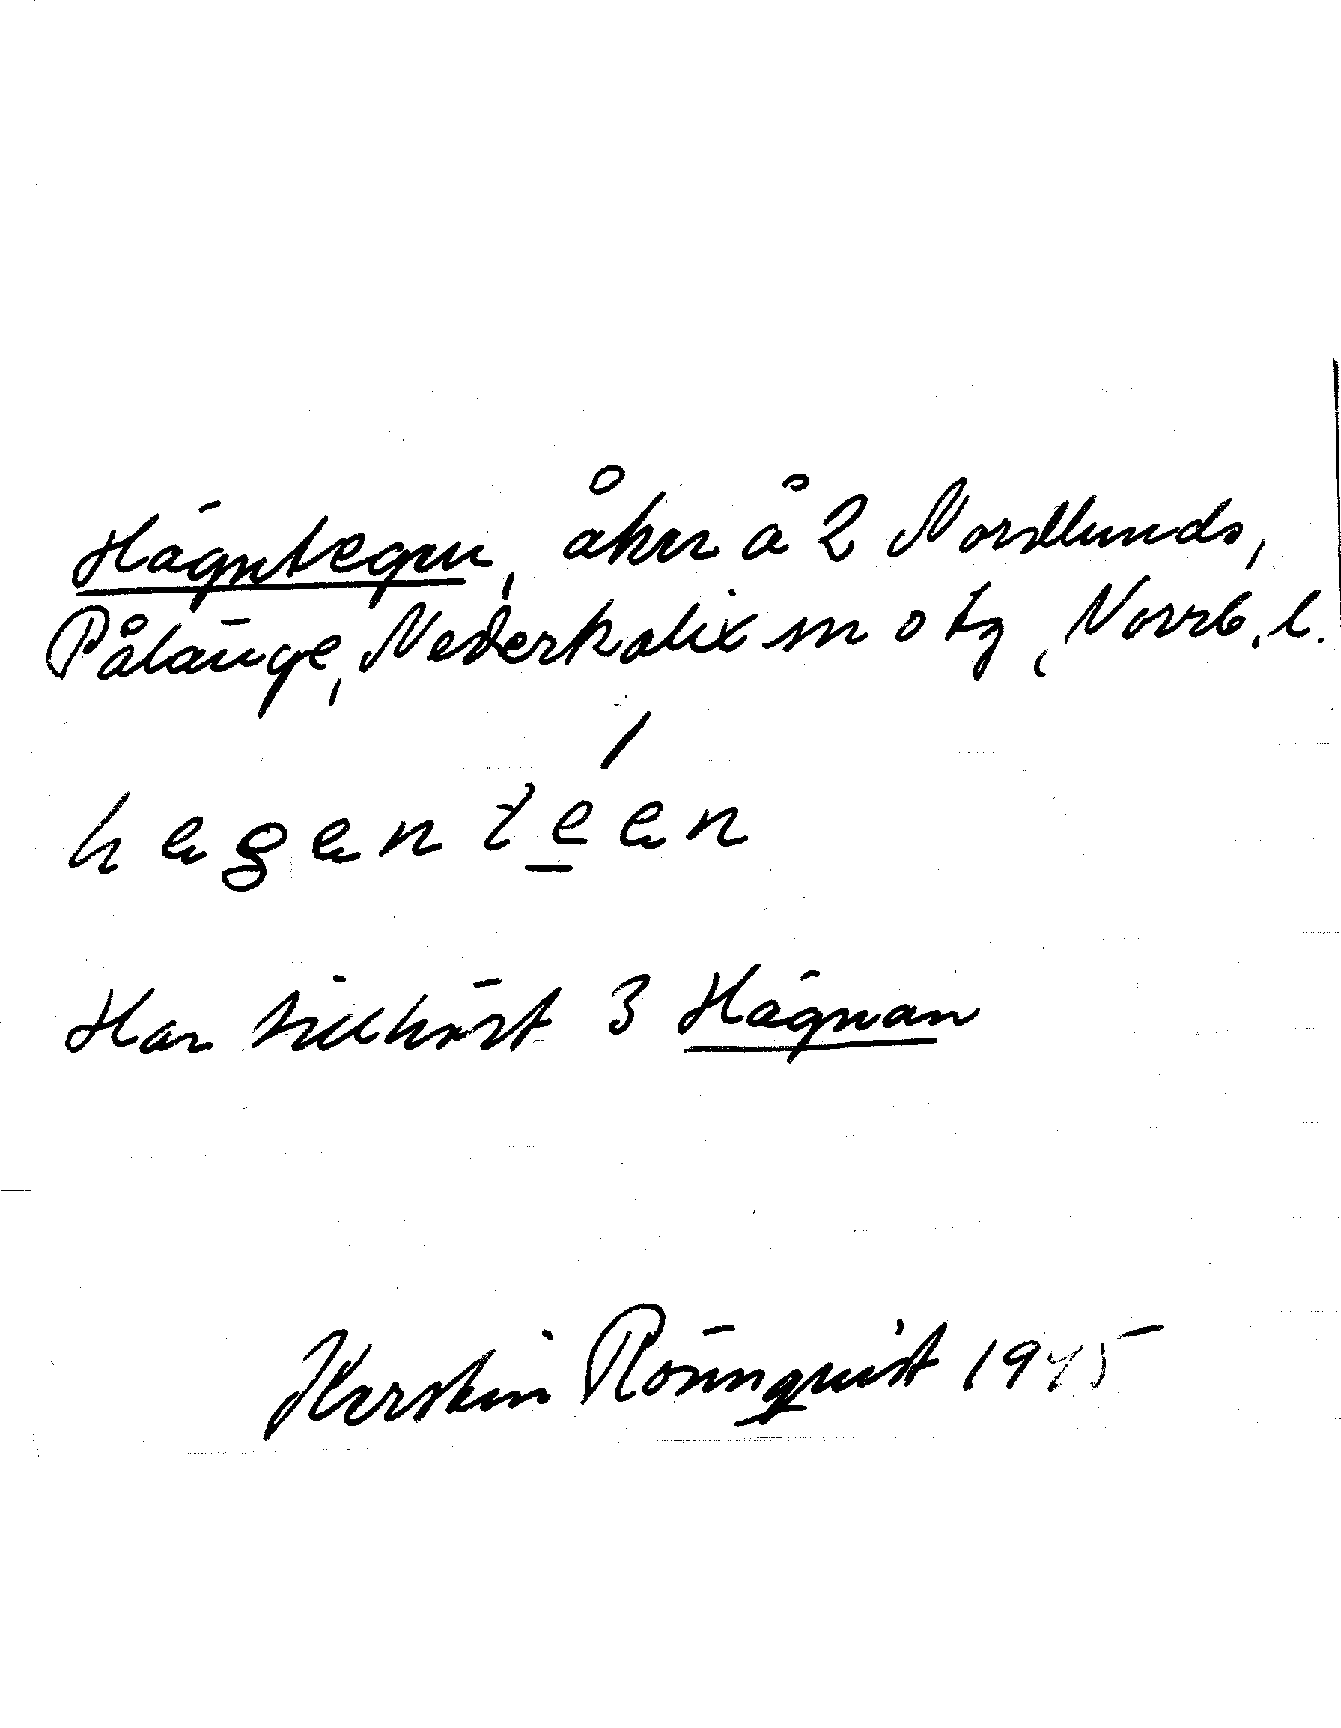 Hägntegen, åker å 2 Nordlunds,
Pålänge, Nederkalix sn o tg, Norrb. l.
Har tillhört 3 Hägnan
Kerstin Rönnquist 1945